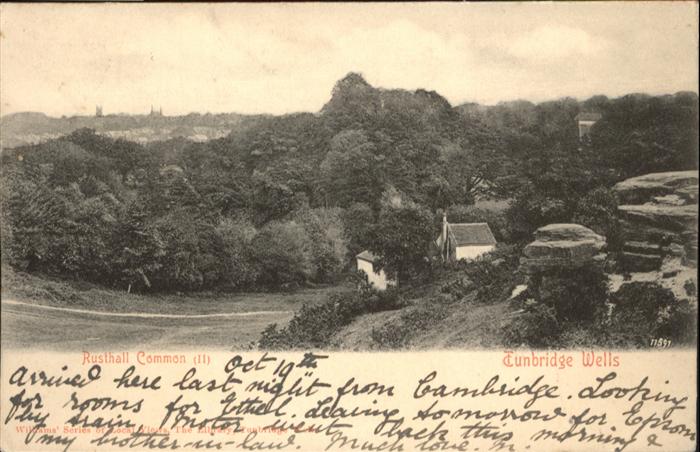 11891
Rusthall Common (II)
Tunbridge Wells
Oct 19th
Arrived here last night from Cambridge. Looking
for rooms for Ethel. Leaving to-morrow for Epsom
by train. Motor back this morning &
Williams' Series of Local Views, The Library, Tunbridge Wells
my brother-in-law. Much love. M.